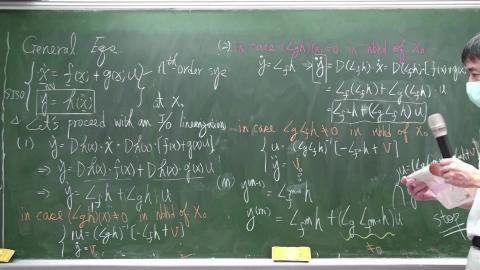 General Eqs.
SISO { ẋ = f(x) + g(x)u } nth order sys
y = h(x) at x₀
Δ Let's proceed with an I/O linearization
(1) ẏ = Dh(x)·ẋ = Dh(x)·[f(x)+g(x)u]
⇒ ẏ = Dh(x)·f(x) + Dh(x)·g(x)u
⇒ ẏ = L_f h + L_g h·u
in case (L_g h)(x) ≠ 0 in nbhd of x₀
{ u = (L_g h)⁻¹[-L_f h + v]
ẏ = v
(2) In case (L_g h)(x) = 0 in nbhd of x₀
ẏ = L_f h ⇒ ÿ = D(L_f h)·ẋ = D(L_f h)·[f(x)+g(x)u]
= L_f(L_f h) + L_g(L_f h)·u
= L_f² h + (L_g L_f h)u
in case L_g L_f h ≠ 0 in nbhd of x₀
{ u = (L_g L_f h)⁻¹[-L_f² h + v]
ÿ = v
(m) y^(m-1) = L_f^(m-1) h
y^(m) = L_f^m h + (L_g L_f^(m-1) h)u
≠0
stop